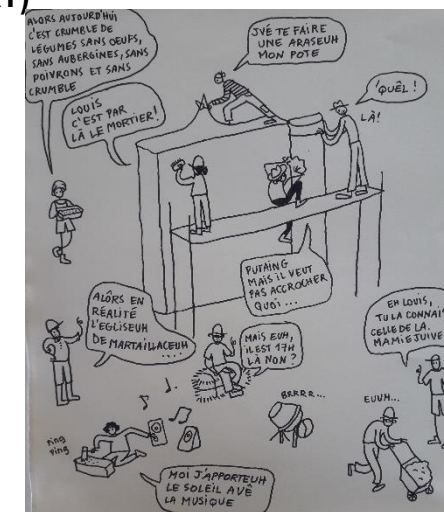 ALORS AUJOURD'HUI
C'EST CRUMBLE DE
LÉGUMES SANS OEUFS,
SANS AUBERGINES, SANS
POIVRONS ET SANS
CRUMBLE
JVÉ TE FAIRE
UNE ARASEUH
MON POTE
LOUIS
C'EST PAR
LÀ LE MORTIER!
'QUÊL !
LÀ!
PUTAING
MAIS IL VEUT
PAS ACCROCHER
QUOI ...
ALÔRS EN
RÉALITÉ
L'EGLISEUH
DE MARTAILLACEUH
....
MAIS EUH,
IL EST 17H
LÀ NON ?
EH LOUIS,
TU LA CONNAI
CELLE DE LA
MAMIE JUIVE
BRRRR...
EUUH...
Ping
Ping
MOI J'APPORTEUH
LE SOLEIL AVÊ
LA MUSIQUE